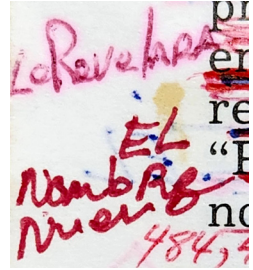 LeRevelara
EL
Nombre
Nuevo
484, 4
pr
er
re
"E
no